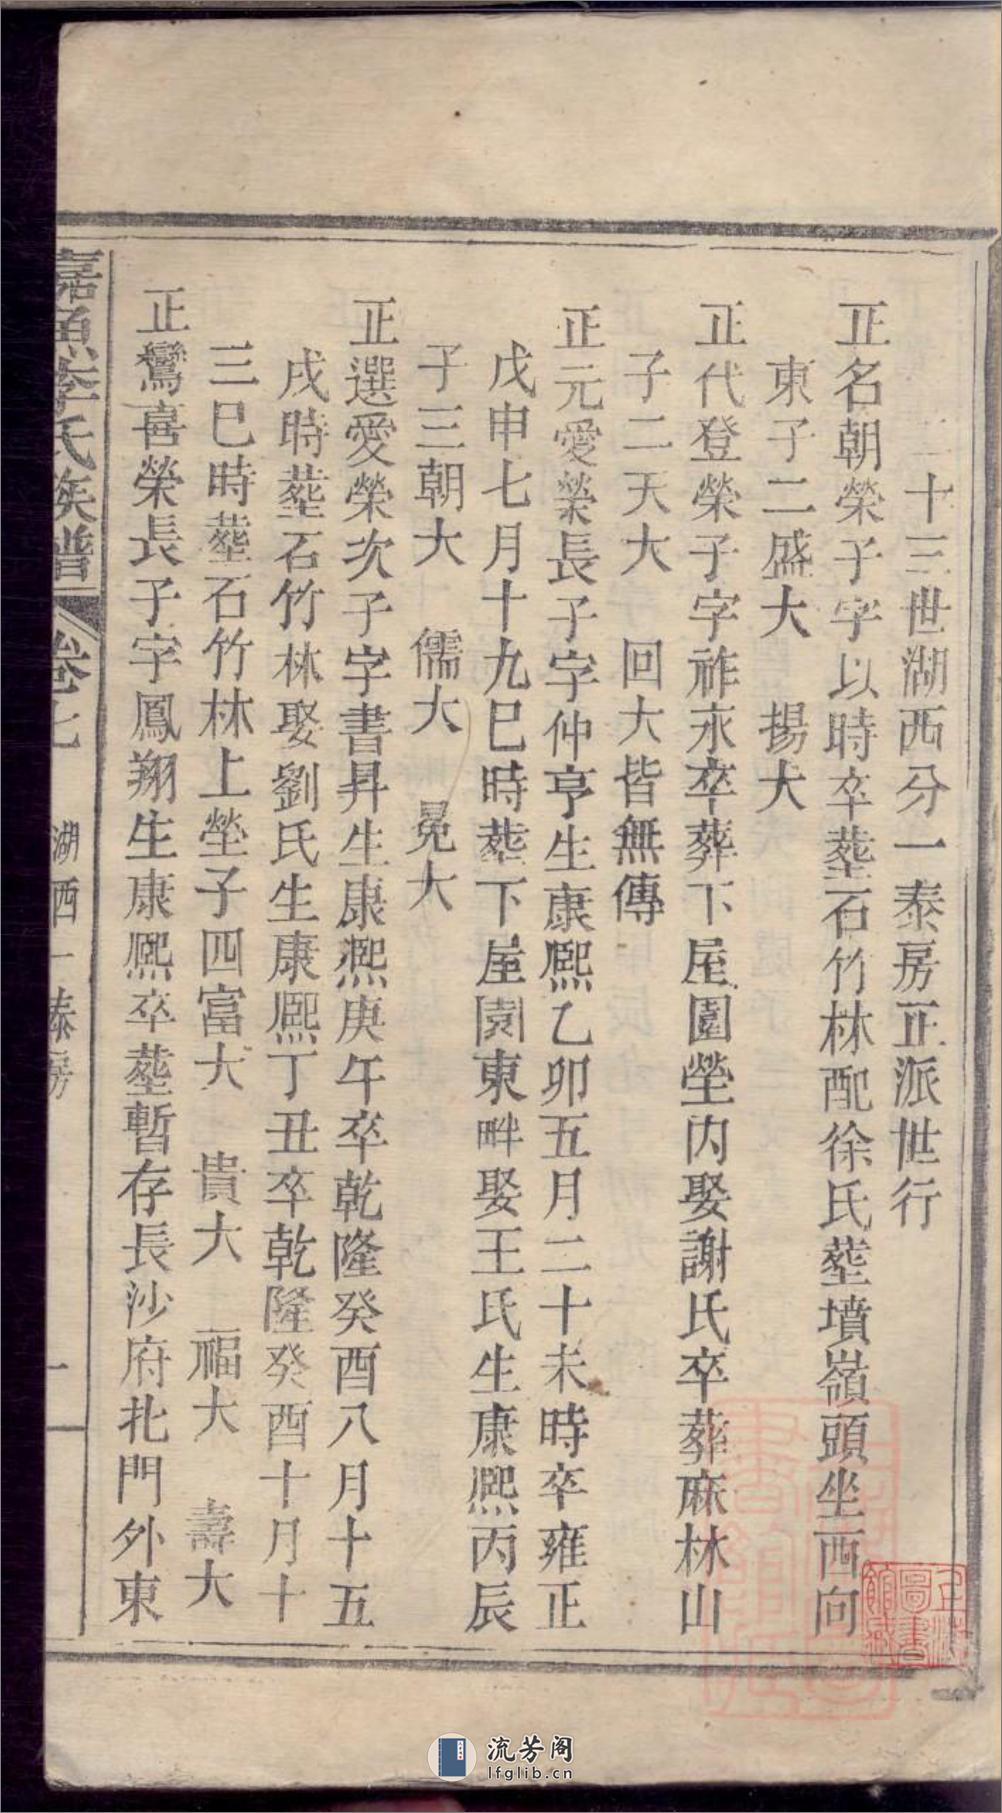 二十三世湖西分一泰房正派世行
正名朝榮子字以時卒塟石竹林配徐氏塟墳嶺頭坐西向
東子二盛大　揚大
正代登榮子字祚永卒葬下屋園塋内娶謝氏卒葬麻林山
子二天大　回大皆無傳
正元愛榮長子字仲亨生康熙乙卯五月二十未時卒雍正
戊申七月十九巳時塟下屋園東畔娶王氏生康熙丙辰
子三朝大　儒大　晃大
正選愛榮次子字書昇生康熙庚午卒乾隆癸酉八月十五
戌時塟石竹林娶劉氏生康熙丁丑卒乾隆癸酉十月十
三巳時塟石竹林上塋子四富大　貴大　福大　壽大
正鸞喜榮長子字鳳翔生康熙卒塟暫存長沙府北門外東
嘉魚李氏族譜　卷七　湖西一泰房　一
流芳阁
lfglib.cn